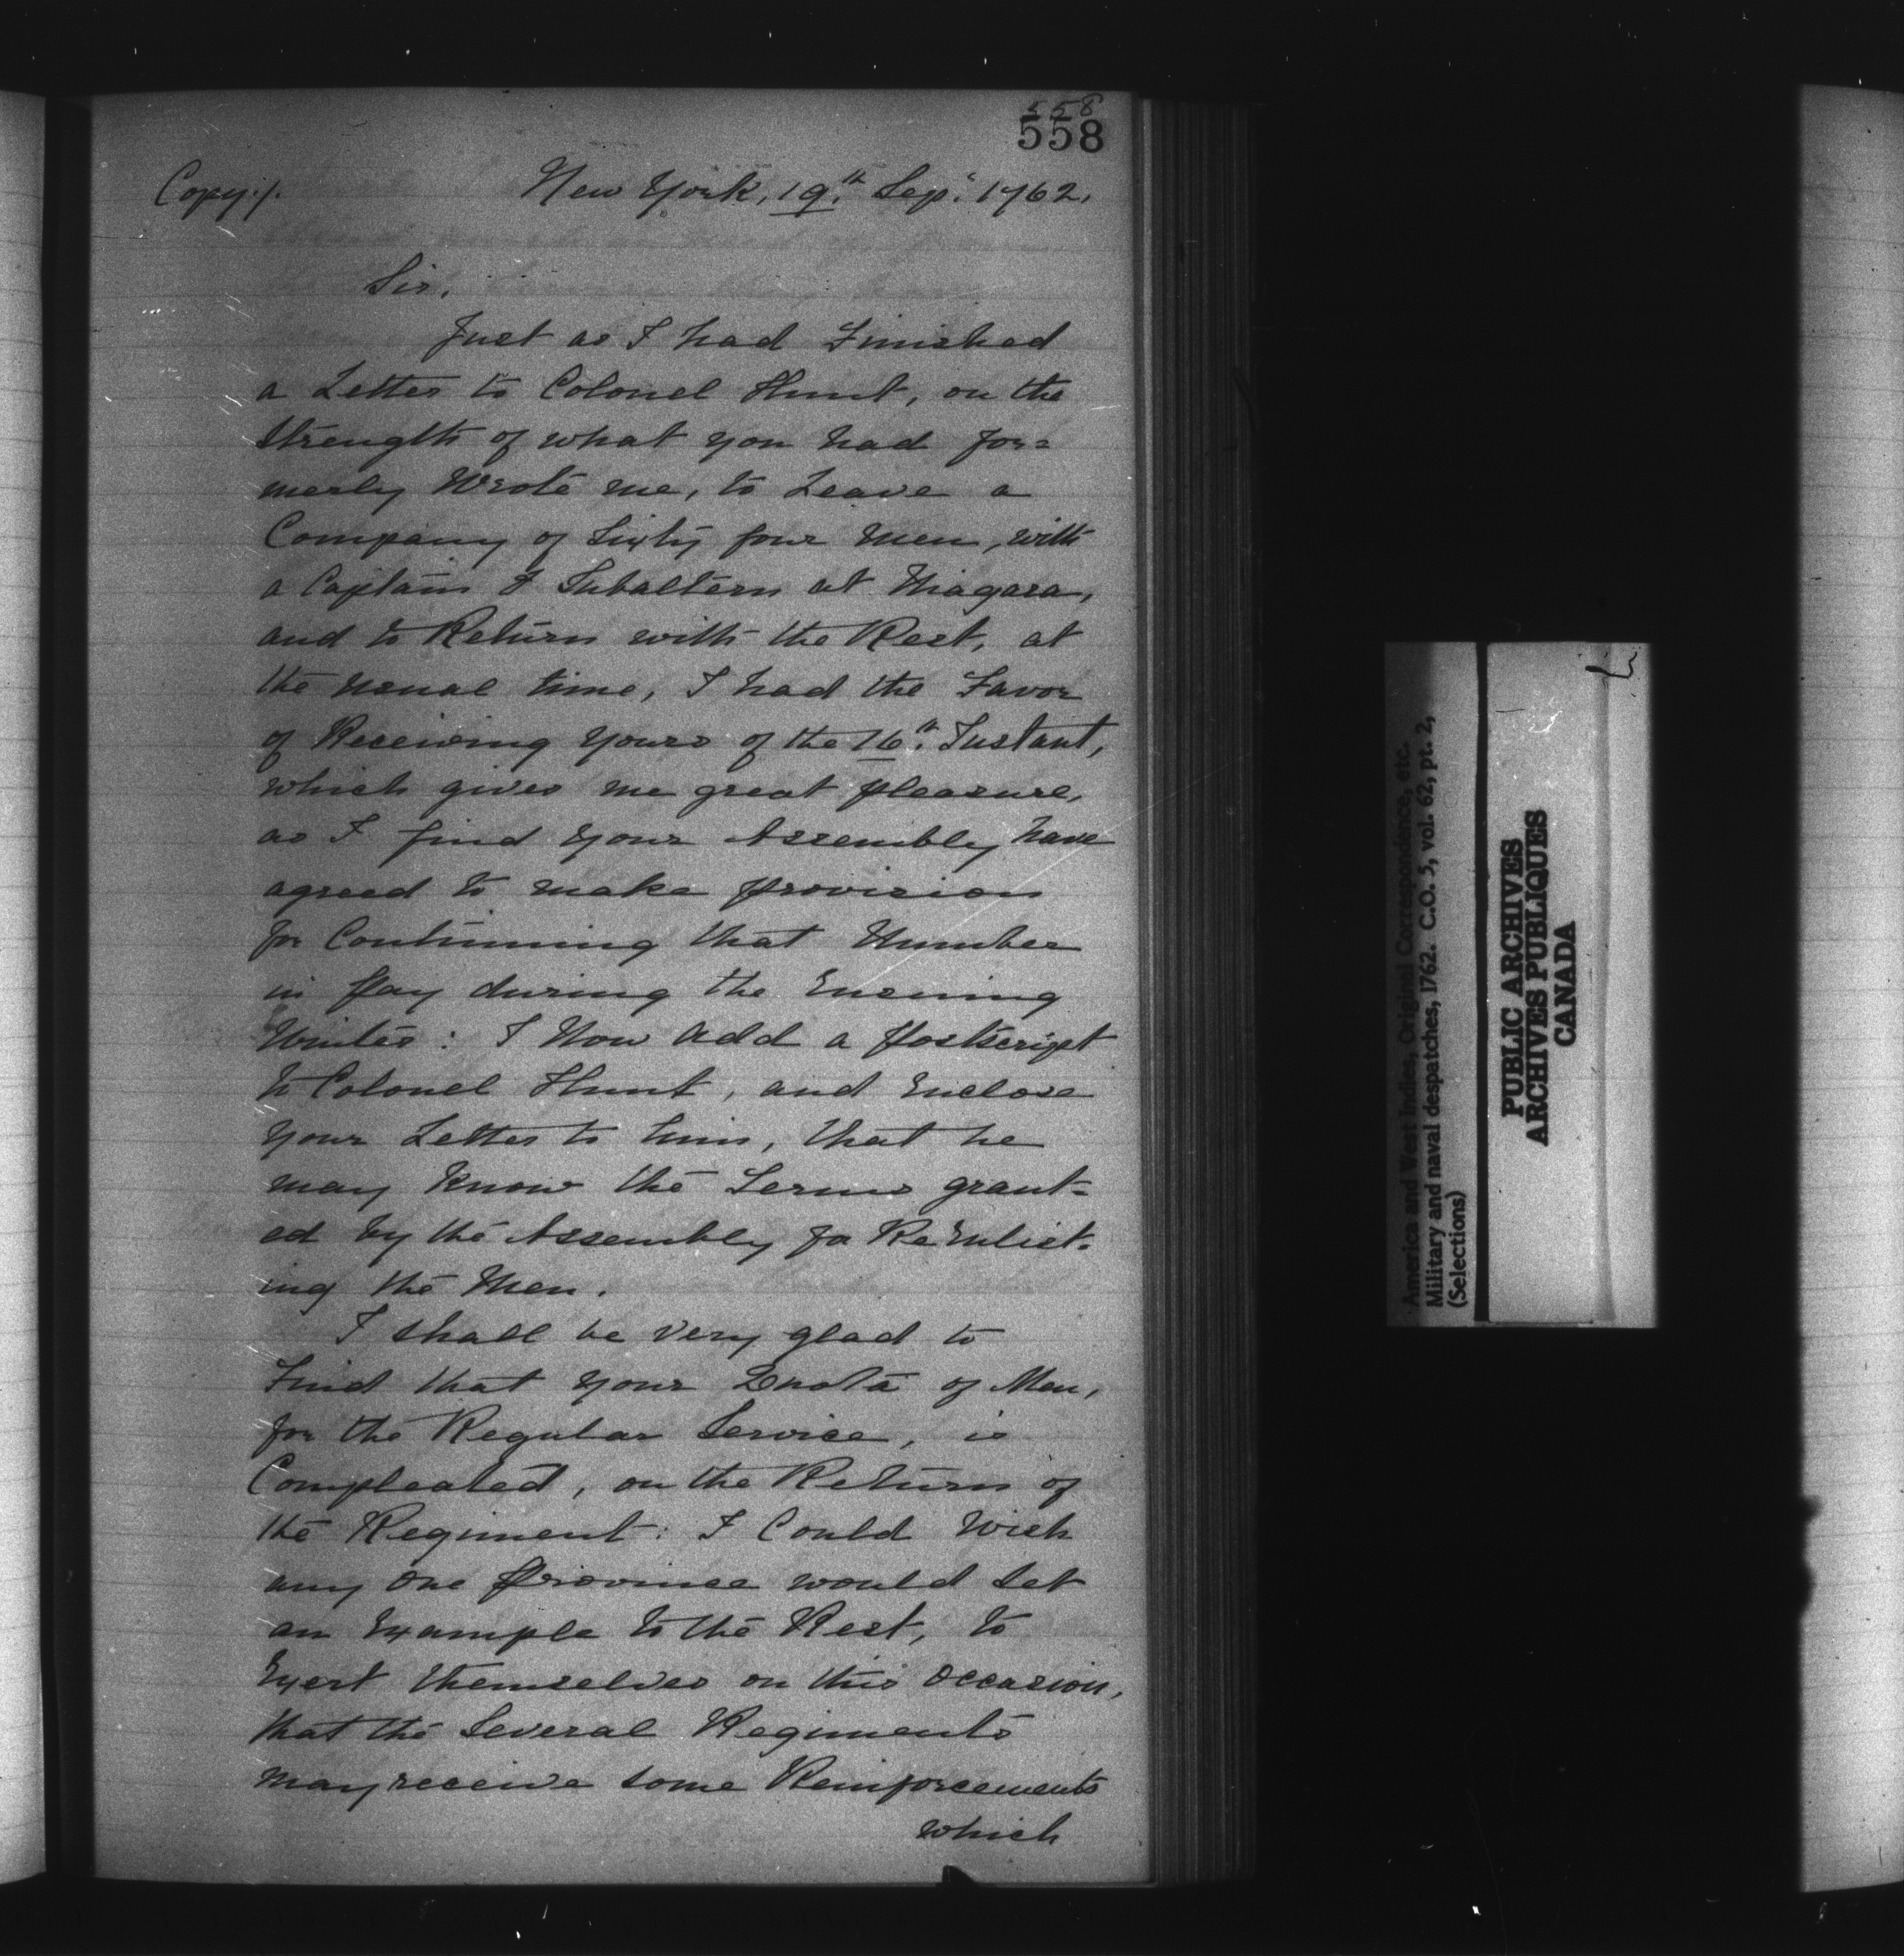 558
558
Copy:/. New York, 19.th Sep.r 1762,
Sir,
Just as I had Finished
a Letter to Colonel Hunt, on the
Strength of what you had for=
merly Wrote me, to Leave a
Company of Sixty four Men, with
a Captain & Subaltern at Niagara,
and to Return with the Rest, at
the usual time, I had the Favor
of Receiving Yours of the 16th. Instant,
which gives me great pleasure,
as I find Your Assembly have
agreed to make provision
for Continuing that Number
in pay during the Ensuing
Winter: I Now add a postscript
to Colonel Hunt, and Enclose
Your Letter to him, that he
may know the Terms grant=
ed by the Assembly for ReEnlist=
ing the Men.
I shall be very glad to
Find that your Quota of Men,
for the Regular Service, is
Compleated, on the Return of
the Regiment: I Could Wish
any One province would Set
an Example to the Rest, to
Exert themselves on this Occasion,
that the Several Regiments
may receive some Reinforcements
which
America and West Indies, Original Correspondence, etc.
Military and naval despatches, 1762. C.O. 5, vol. 62, pt. 2,
(Selections)
PUBLIC ARCHIVES
ARCHIVES PUBLIQUES
CANADA